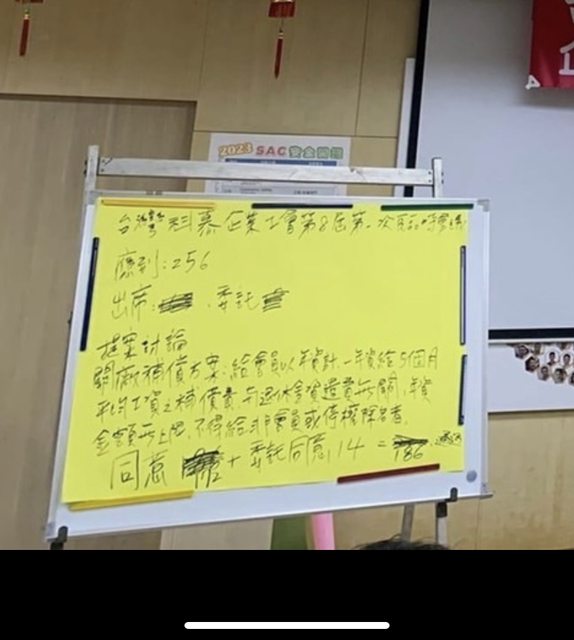 2023 SAC 安全
台灣科慕企業工會第8屆第一次臨時會議
應到:256
出席: 委託
提案討論
關廠補償方案:給會員以年資計,一年資給5個月
平均工資之補償費,與退休金資遣費無關,年資
金額無上限,不得給非會員或停權除名者.
同意 + 委託同意 14 = 186 通過
企